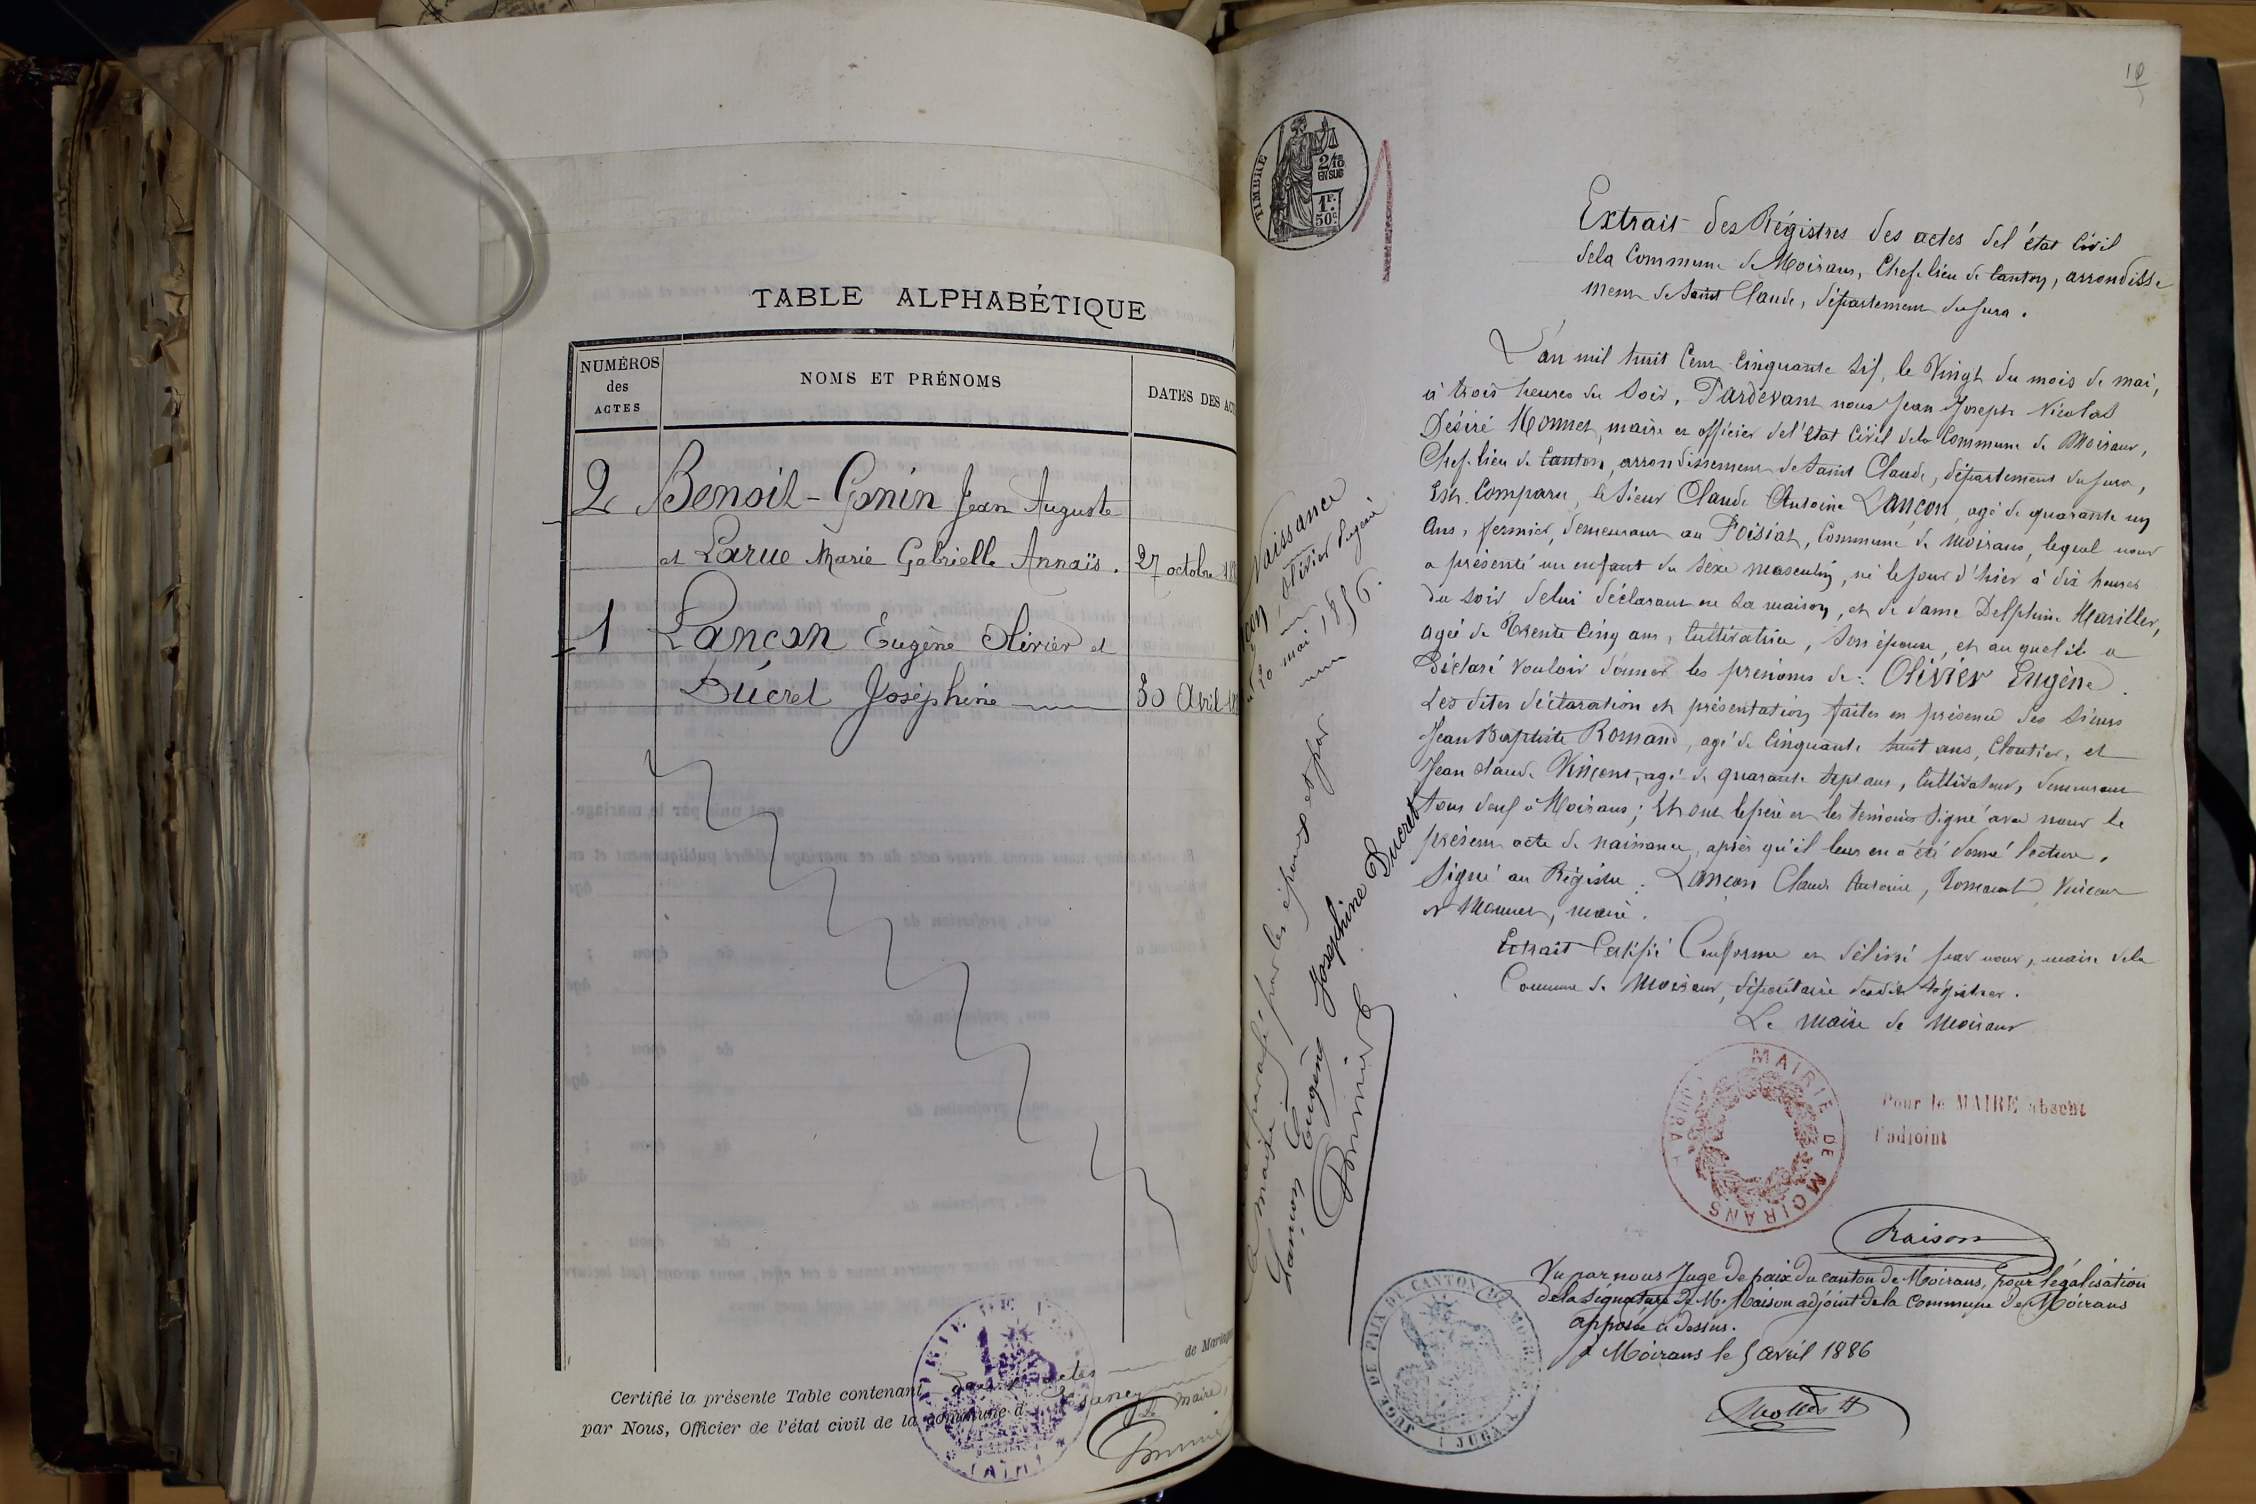 TABLE ALPHABÉTIQUE
NUMÉROS
des
ACTES
NOMS ET PRÉNOMS
DATES DES ACT
2 Benoit-Gonin Jean Auguste
et Larue Marie Gabrielle Annaïs. 27 octobre 18
1 Lançon Eugène Olivier et
Ducret Joséphine 30 Avril 18
Certifié la présente Table contenant deux actes de Mariage
par Nous, Officier de l'état civil de la commune d
le Maire,
TIMBRE
2/10
EN SUS
1F.
50c
Naissance
Olivier Eugène
20 mai 1856.
paraphé par les époux et par
le maire
Lançon Eugène Josephine Ducret
Extrait des Régistres des actes de l'état Civil
de la Commune de Moirans, Chef-lieu de Canton, arrondisse
ment de Saint Claude, département du Jura.
L'an mil huit Cent Cinquante Six, le Vingt du mois de mai,
à trois heures du soir, Pardevant nous Jean Joseph Nicolas
Désiré Monnet, maire et officier de l'état Civil de la Commune de Moirans,
Chef-lieu de Canton, arrondissement de Saint Claude, département du Jura,
Est Comparu, le Sieur Claude Antoine Lançon, agé de quarante un
ans, fermier, demeurant au Foisiat, Commune de Moirans, lequel nous
a présenté un enfant du sexe masculin, né le jour d'hier à dix heures
du soir, de lui déclarant en sa maison, et de dame Delphine Mariller,
agée de Trente Cinq ans, Cultivatrice, son épouse, et au quel il a
Déclaré vouloir donner les prénoms de: Olivier Eugène.
Les dites déclaration et présentation faites en présence des sieurs
Jean Baptiste Romand, agé de Cinquante huit ans, Cloutier, et
Jean Claude Vincent, agé de quarante sept ans, Cultivateur, demeurant
tous deux à Moirans; Et ont le père et les témoins signé avec nous le
présent acte de naissance, après qu'il leur en a été donné lecture.
Signé au Régistre: Lançon Claude Antoine, Romand, Vincent
et Monnet, maire.
Extrait Certifié Conforme et délivré par nous, maire de la
Commune de Moirans, dépositaire desdits Régistres.
Le Maire de Moirans
MAIRIE DE MOIRANS (JURA)
Pour le MAIRE absent
l'adjoint
Raison
Vu par nous Juge de paix du canton de Moirans, pour légalisation
de la Signature de M. Raison adjoint de la commune de Moirans
apposée ci dessus.
à Moirans le 5 avril 1886
JUGE DE PAIX DU CANTON DE MOIRANS (JURA)